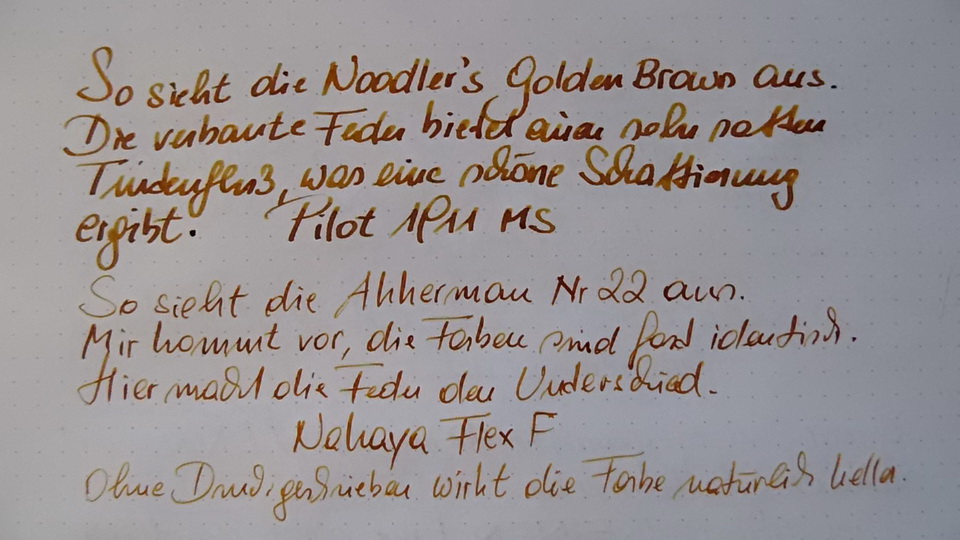 So sieht die Noodler's Golden Brown aus.
Die verbaute Feder bietet einen sehr satten
Tintenfluß, was eine schöne Schattierung
ergibt. Pilot 1911 MS
So sieht die Akkerman Nr 22 aus.
Mir kommt vor, die Farben sind fast identisch.
Hier macht die Feder den Unterschied.
Nakaya Flex F
Ohne Druck geschrieben wirkt die Farbe natürlich heller.